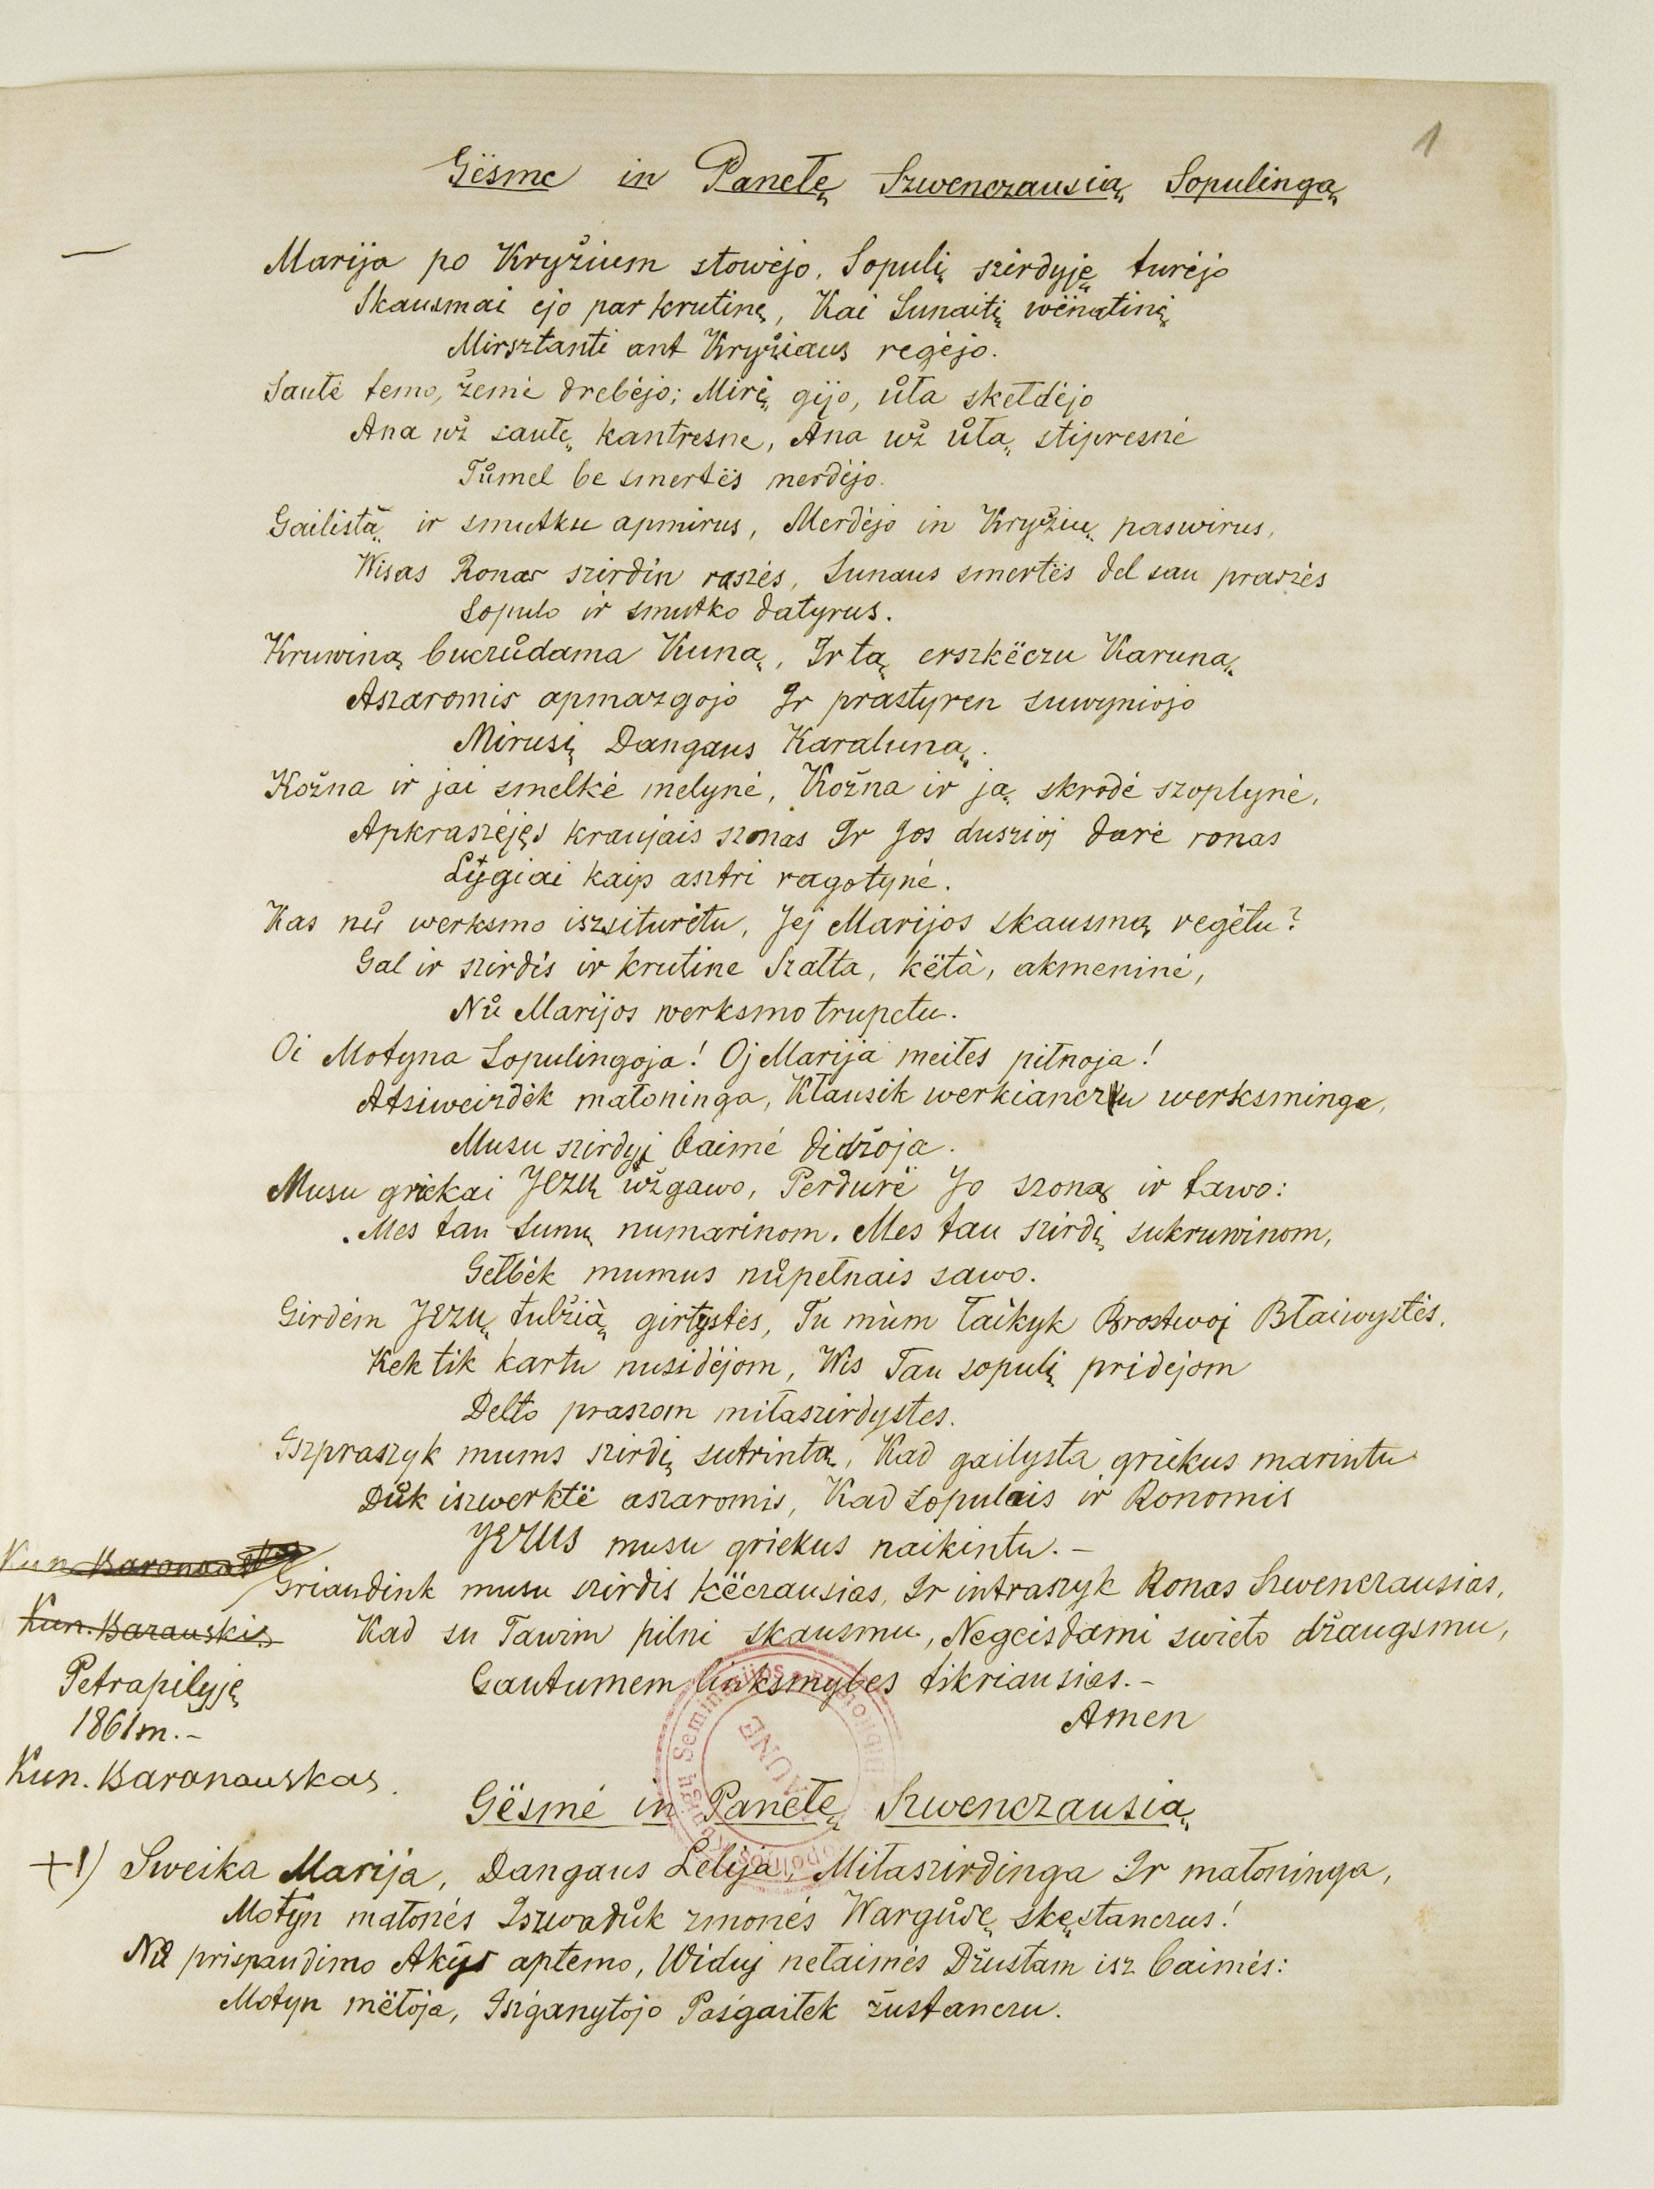 1
Gësme in Panełę Szwenczausią Sopulingą
Marija po Kryžium stowėjo, Sopulį szirdyję turėjo
Skausmai ejo par krutinę, Kai Sunaitį wënatinį
Mirsztanti ant Kryžiaus regėjo.
Saulė temo, žemė drebėjo; Mirę gijo, ůła skełdėjo
Ana už saulę kantresne, Ana už ůłą stipresnė
Tůmel be smertës merdėjo.
Gailistą ir smutku apmirus, Merdėjo in Kryžių paswirus,
Wisas Ronas szirdin raszės, Sunaus smertës del sau praszės
Sopulo ir smutko datyrus.
Kruwiną buczůdama Kuną, Ir tą erszkëczu Karuną
Aszaromis apmazgojo Ir prastyren suwyniojo
Mirusį Dangaus Karaluną.
Kožna ir jai smelkė melynė, Kožna ir ją skrodė szoplynė,
Apkraszėjęs kraujais szonas Ir Jos duszioj darė ronas
Lygiai kaip asztri ragotynė.
Kas nů werksmo iszsiturėtu, Jej Marijos skausmą regėtu?
Gal ir szirdis ir krutine Szałta, këtà, akmeninė,
Nů Marijos werksmo trupetu.
Oi Motyna Sopulingoja! Oj Marija meiłes piłnoja!
Atsiweizdėk małoninga, Kłausik werkianczu werksminga,
Musu szirdyj baimė didžoja.
Musu griekai JEZU užgawo, Perdurë Jo szoną ir tawo:
Mes tau Sunų numarinom. Mes tau szirdį sukruwinom,
Gełbėk mumus nůpełnais sawo.
Girdėm JEZU tulžią girtystės, Tu mùm łaikyk Brostwoj Błaiwystės,
Kek tik kartu nusidėjom, Wis Tau sopulį pridejom
Delto praszom miłaszirdystes.
Iszpraszyk mums szirdį sutrintą, Kad gailysta griekus marintu
Důk iszwerktë aszaromis, Kad Sopulais ir Ronomis
JEZUS musu griekus naikintu.–
Griaudink musu szirdis këczausias, Ir intraszyk Ronas Szwenczausias,
Kad su Tawim pilni skausmu, Negeisdami swieto džaugsmu,
Gautumem linksmybes tikriausias.–
Amen
Kun. Barauskis
Petrapilyję
1861m.–
Kun. Baranauskas.
Gësmė in Panełę Szwenczausią
+1) Sweika Marija, Dangaus Lelija, Miłaszirdinga Ir małoninga,
Motyn małonės Iszwadůk zmonės Wargůse skęstanczus!
Nů prispaudimo Akys aptemo, Widuj nełaimės Džustam isz baimės:
Motyn mëłoja, Iszganytojo Pasgailek žustanczu.